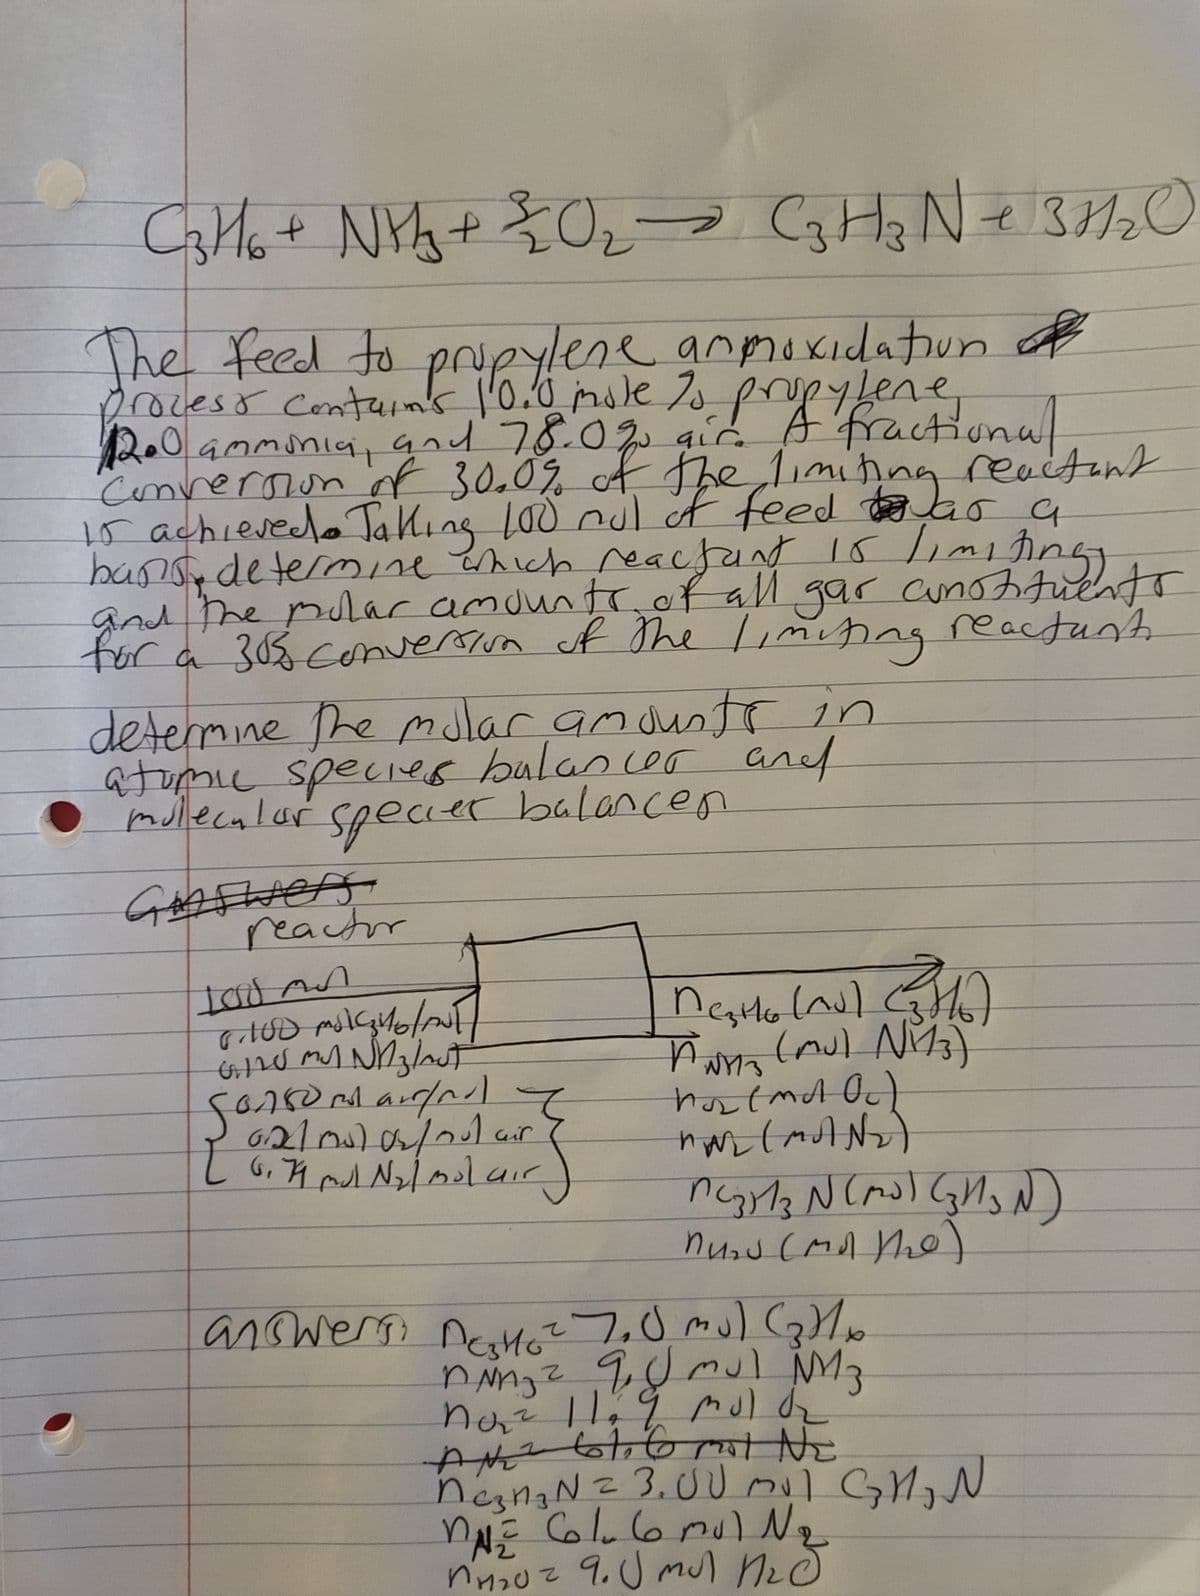 C₃H₆ + NH₃ + 3/2 O₂ → C₃H₃N + 3H₂O
The feed to propylene ammoxidation
process contains 10.0 mole % propylene,
12.0 ammonia, and 78.0% air. A fractional
conversion of 30.0% of the limiting reactant
is achieved. Taking 100 mol of feed as a
basis, determine which reactant is limiting,
and the molar amounts of all gas constituents
for a 30% conversion of the limiting reactant
determine the molar amounts in
atomic species balances and
molecular species balances
answers
reactor
100 mol
0.100 mol C₃H₆/mol
0.120 mol NH₃/mol
0.780 mol air/mol
0.21 mol O₂/mol air
0.79 mol N₂/mol air
nC₃H₆ (mol C₃H₆)
nNH₃ (mol NH₃)
nO₂ (mol O₂)
nN₂ (mol N₂)
nC₃H₃N (mol C₃H₃N)
nH₂O (mol H₂O)
answers: nC₃H₆ = 7.0 mol C₃H₆
nNH₃ = 9.0 mol NH₃
nO₂ = 11.9 mol O₂
nN₂ = 61.6 mol N₂
nC₃H₃N = 3.00 mol C₃H₃N
nN₂ = 61.6 mol N₂
nH₂O = 9.0 mol H₂O